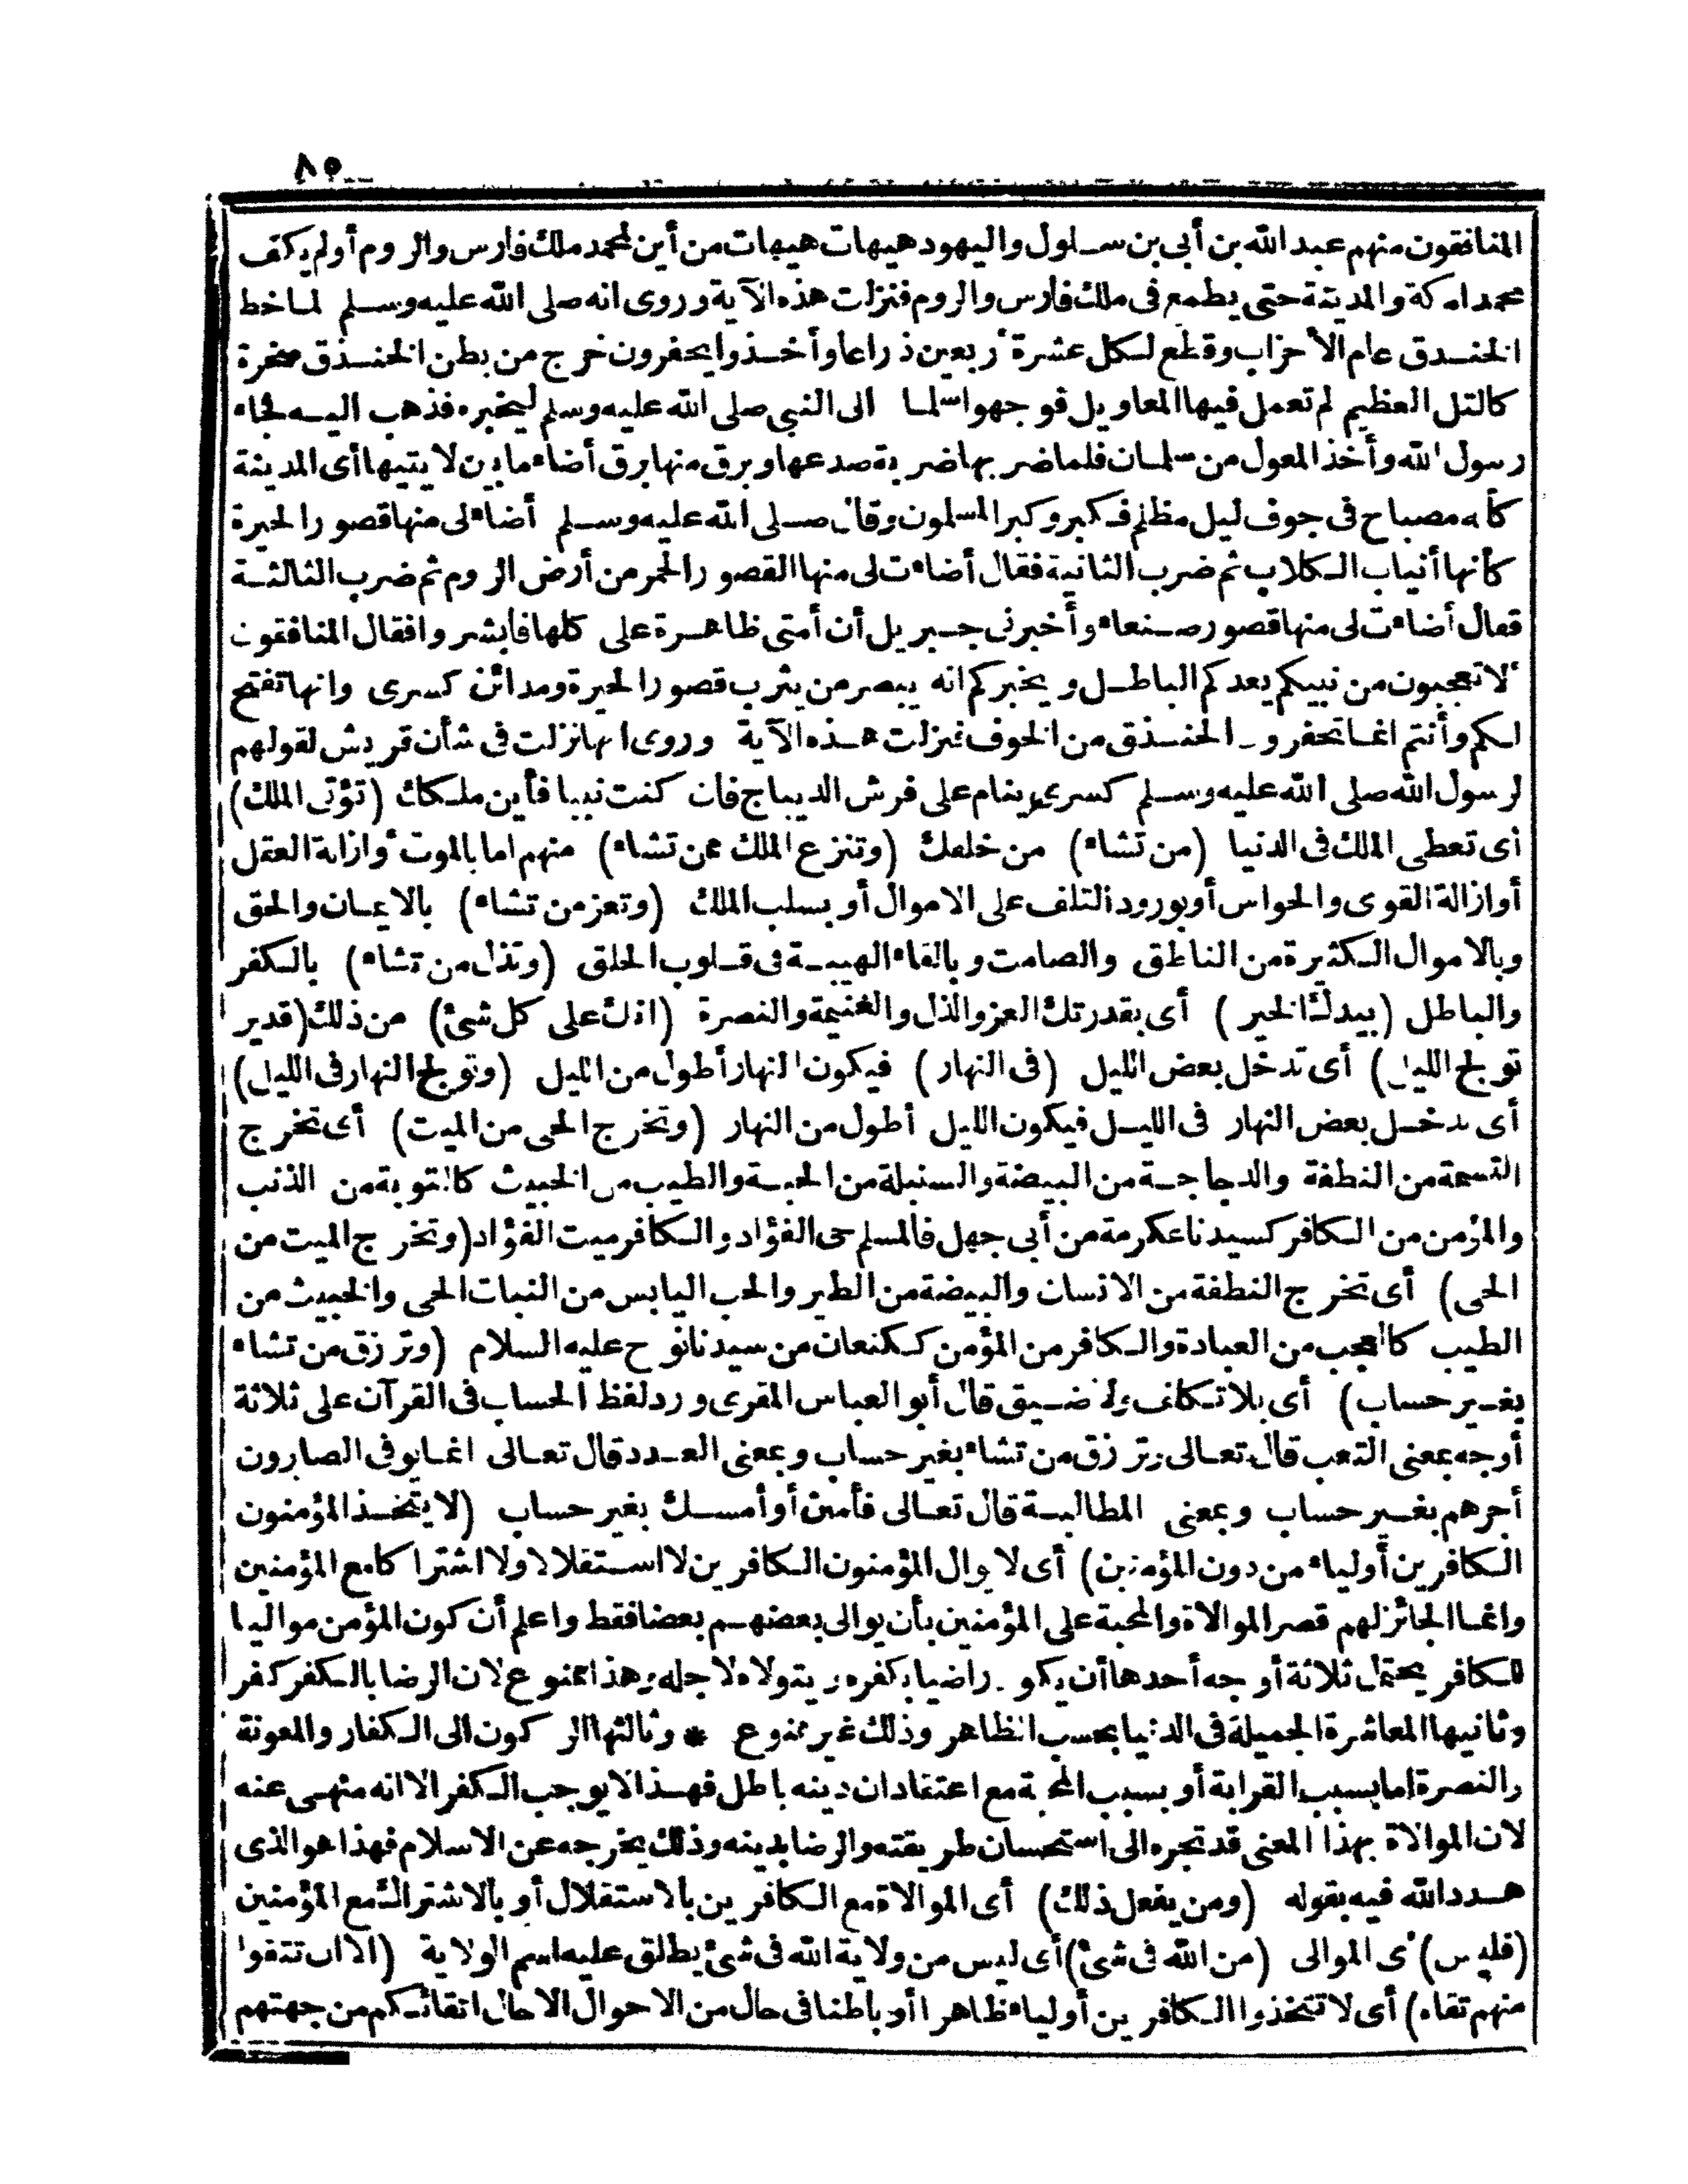 ٨٥
المنافقون منهم عبد الله بن أبي بن سلول واليهود هيهات هيهات من أين لمحمد ملك فارس والروم أولم يكف
محمدا مكة والمدينة حتى يطمع فى ملك فارس والروم فنزلت هذه الآية وروى انه صلى الله عليه وسلم لما خط
الخندق عام الأحزاب وقطع لكل عشرة أربعين ذراعا وأخذوا يحفرون خرج من بطن الخندق صخرة
كالتل العظيم لم تعمل فيها المعاويل فوجهوا سلمان الى النبي صلى الله عليه وسلم ليخبره فذهب اليه فجاء
رسول الله وأخذ المعول من سلمان فلما ضربها ضربة صدعها وبرق منها برق أضاء ما بين لابتيها أى المدينة
كأنه مصباح فى جوف ليل مظلم فكبر وكبر المسلمون وقال صلى الله عليه وسلم أضاء لى منها قصور الحيرة
كأنها أنياب الكلاب ثم ضرب الثانية فقال أضاءت لى منها القصور الحمر من أرض الروم ثم ضرب الثالثة
فقال أضاءت لى منها قصور صنعاء وأخبرنى جبريل أن أمتى ظاهرة على كلها فأبشروا فقال المنافقون
ألا تعجبون من نبيكم يعدكم الباطل ويخبركم انه يبصر من يثرب قصور الحيرة ومدائن كسرى وانها تفتح
لكم وأنتم انما تحفرون الخندق من الخوف فنزلت هذه الآية وروى انها نزلت فى شأن قريش لقولهم
لرسول الله صلى الله عليه وسلم كسرى ينام على فرش الديباج فان كنت نبيا فأين ملكك (تؤتى الملك)
أى تعطى الملك فى الدنيا (من تشاء) من خلقك (وتنزع الملك ممن تشاء) منهم اما بالموت أو ازالة العقل
أو ازالة القوى والحواس أو بورود التلف على الاموال أو بسلب الملك (وتعز من تشاء) بالايمان والحق
وبالاموال الكثيرة من الناطق والصامت وبالقاء الهيبة فى قلوب الخلق (وتذل من تشاء) بالكفر
والباطل (بيدك الخير) أى بقدرتك العز والذل والغنيمة والنصرة (انك على كل شئ) من ذلك (قدير
تولج الليل) أى تدخل بعض الليل (فى النهار) فيكون النهار أطول من الليل (وتولج النهار فى الليل)
أى تدخل بعض النهار فى الليل فيكون الليل أطول من النهار (وتخرج الحى من الميت) أى تخرج
النسمة من النطفة والدجاجة من البيضة والسنبلة من الحبة والطيب من الخبيث كالتوبة من الذنب
والمؤمن من الكافر كسيدنا عكرمة من أبى جهل فالمسلم حى الفؤاد والكافر ميت الفؤاد (وتخرج الميت من
الحى) أى تخرج النطفة من الانسان والبيضة من الطير والحب اليابس من النبات الحى والخبيث من
الطيب كالعجب من العبادة والكافر من المؤمن ككنعان من سيدنا نوح عليه السلام (وترزق من تشاء
بغير حساب) أى بلا تكلف ولا ضيق قال أبو العباس المقرى ورد لفظ الحساب فى القرآن على ثلاثة
أوجه بمعنى التعب قال تعالى وترزق من تشاء بغير حساب وبمعنى العدد قال تعالى انما يوفى الصابرون
أجرهم بغير حساب وبمعنى المطالبة قال تعالى فأمنن أو أمسك بغير حساب (لا يتخذ المؤمنون
الكافرين أولياء من دون المؤمنين) أى لا يوال المؤمنون الكافرين لا استقلالا ولا اشتراكا مع المؤمنين
وانما الجائز لهم قصر الموالاة والمحبة على المؤمنين بأن يوالى بعضهم بعضا فقط واعلم أن كون المؤمن مواليا
للكافر يحتمل ثلاثة أوجه أحدها أن يكون راضيا بكفره ويتولاه لاجله وهذا ممنوع لان الرضا بالكفر كفر
وثانيها المعاشرة الجميلة فى الدنيا بحسب الظاهر وذلك غير ممنوع * وثالثها الركون الى الكفار والمعونة
والنصرة اما بسبب القرابة أو بسبب المحبة مع اعتقاد ان دينه باطل فهذا لا يوجب الكفر الا انه منهى عنه
لان الموالاة بهذا المعنى قد تجره الى استحسان طريقته والرضا بدينه وذلك يخرجه عن الاسلام فهذا هو الذى
هدد الله فيه بقوله (ومن يفعل ذلك) أى الموالاة مع الكافرين بالاستقلال أو بالاشتراك مع المؤمنين
(فليس) أى الموالى (من الله فى شئ) أى ليس من ولاية الله فى شئ يطلق عليه اسم الولاية (الا ان تتقوا
منهم تقاة) أى لا تتخذوا الكافرين أولياء ظاهرا أو باطنا فى حال من الاحوال الا حال اتقائكم من جهتهم